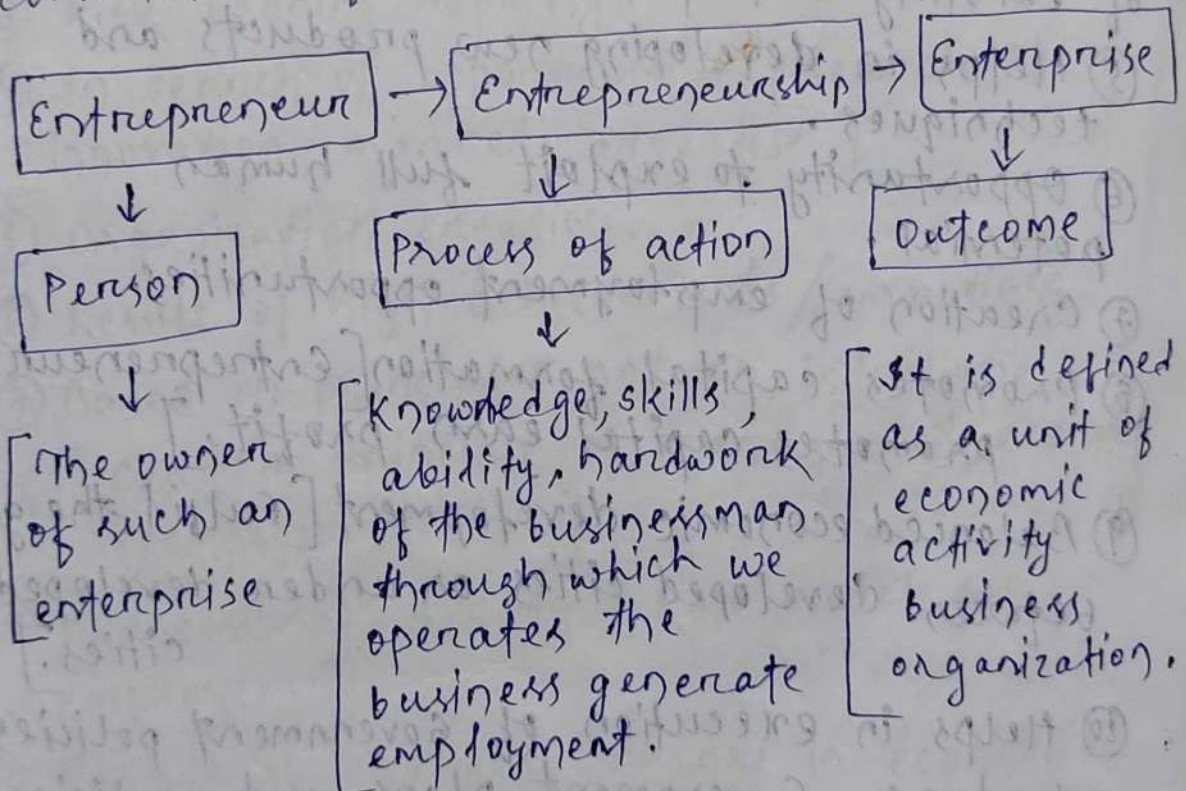 Entrepreneur → Entrepreneurship → Enterprise
↓ ↓ ↓
Person Process of action Outcome
↓ ↓
The owner
of such an
enterprise
Knowledge, skills,
ability, hardwork
of the businessman
through which we
operates the
business generate
employment.
It is defined
as a unit of
economic
activity
business
organization.